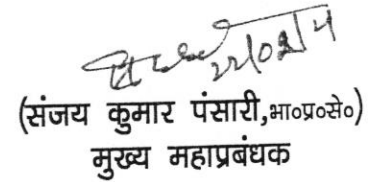 22/02/14
(संजय कुमार पंसारी,भा०प्र०से०)
मुख्य महाप्रबंधक